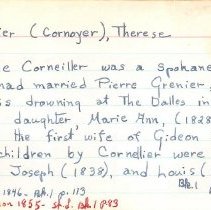 ier (Cornoyer), Therese
e Corneiller was a Spokane
had married Pierre Grenier,
is drowning at The Dalles in
daughter Marie Ann, (1828
the first wife of Gideon
children by Cornellier were
Joseph (1838), and Louis (
Bk. 1
1846- Bk. 1 p. 113
on 1855- Bk 1 p93